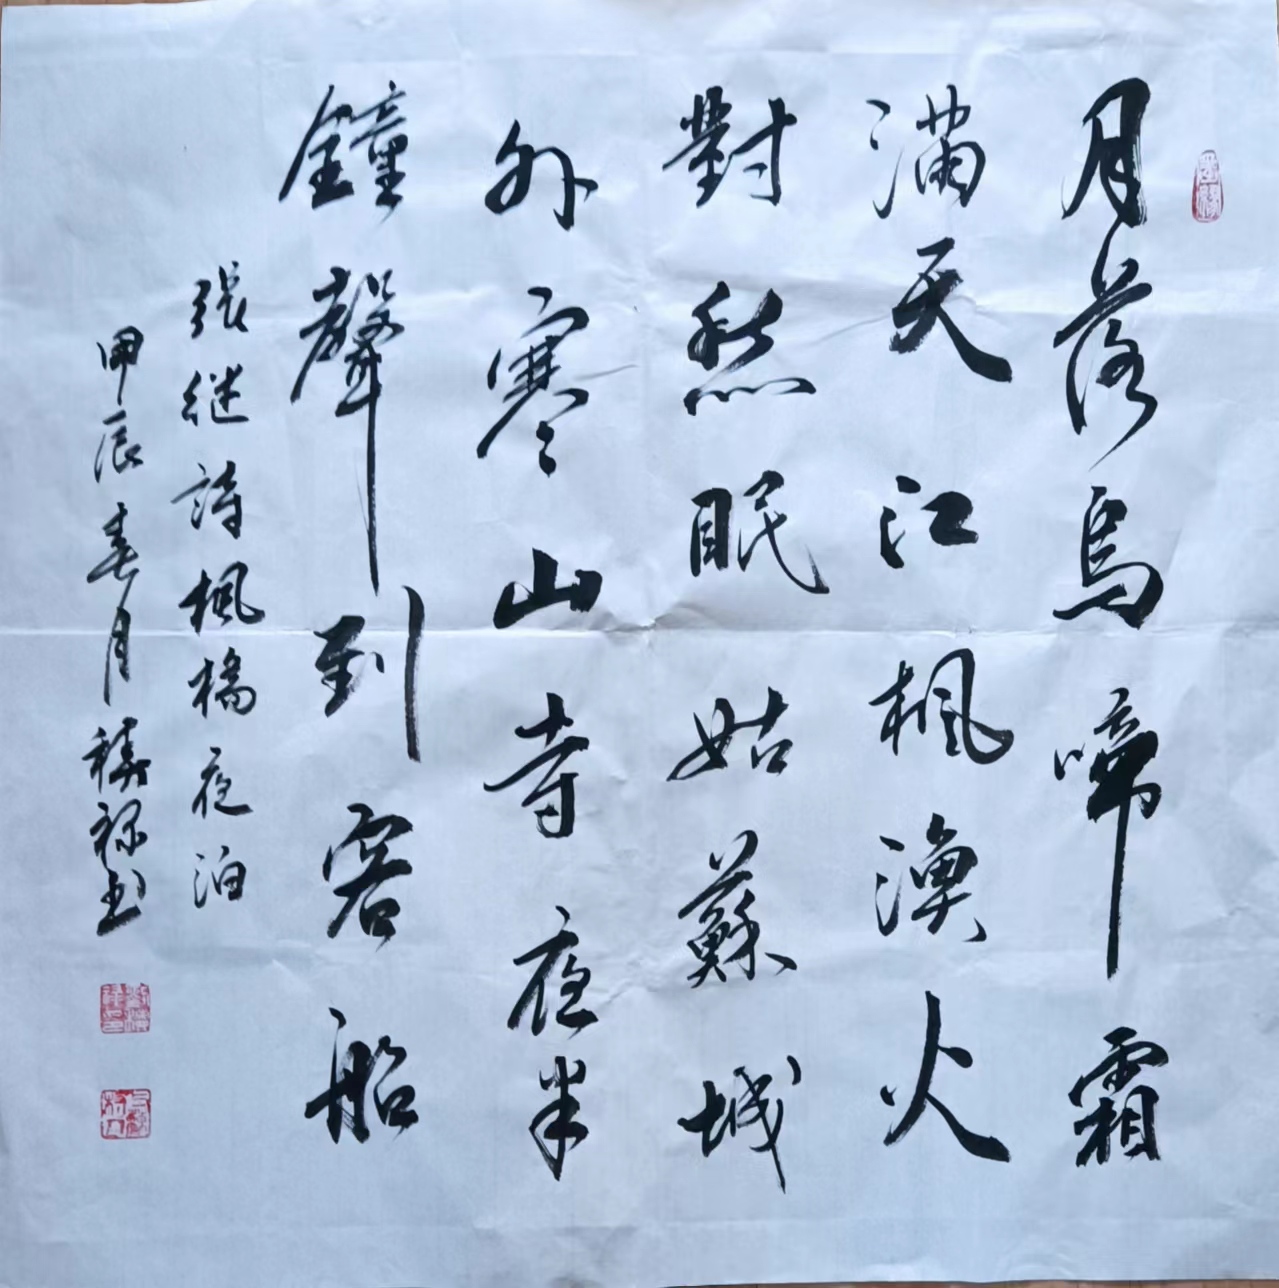 月落烏啼霜
滿天江楓漁火
對愁眠姑蘇城
外寒山寺夜半
鐘聲到客船
張继詩楓橋夜泊
甲辰春月禄书